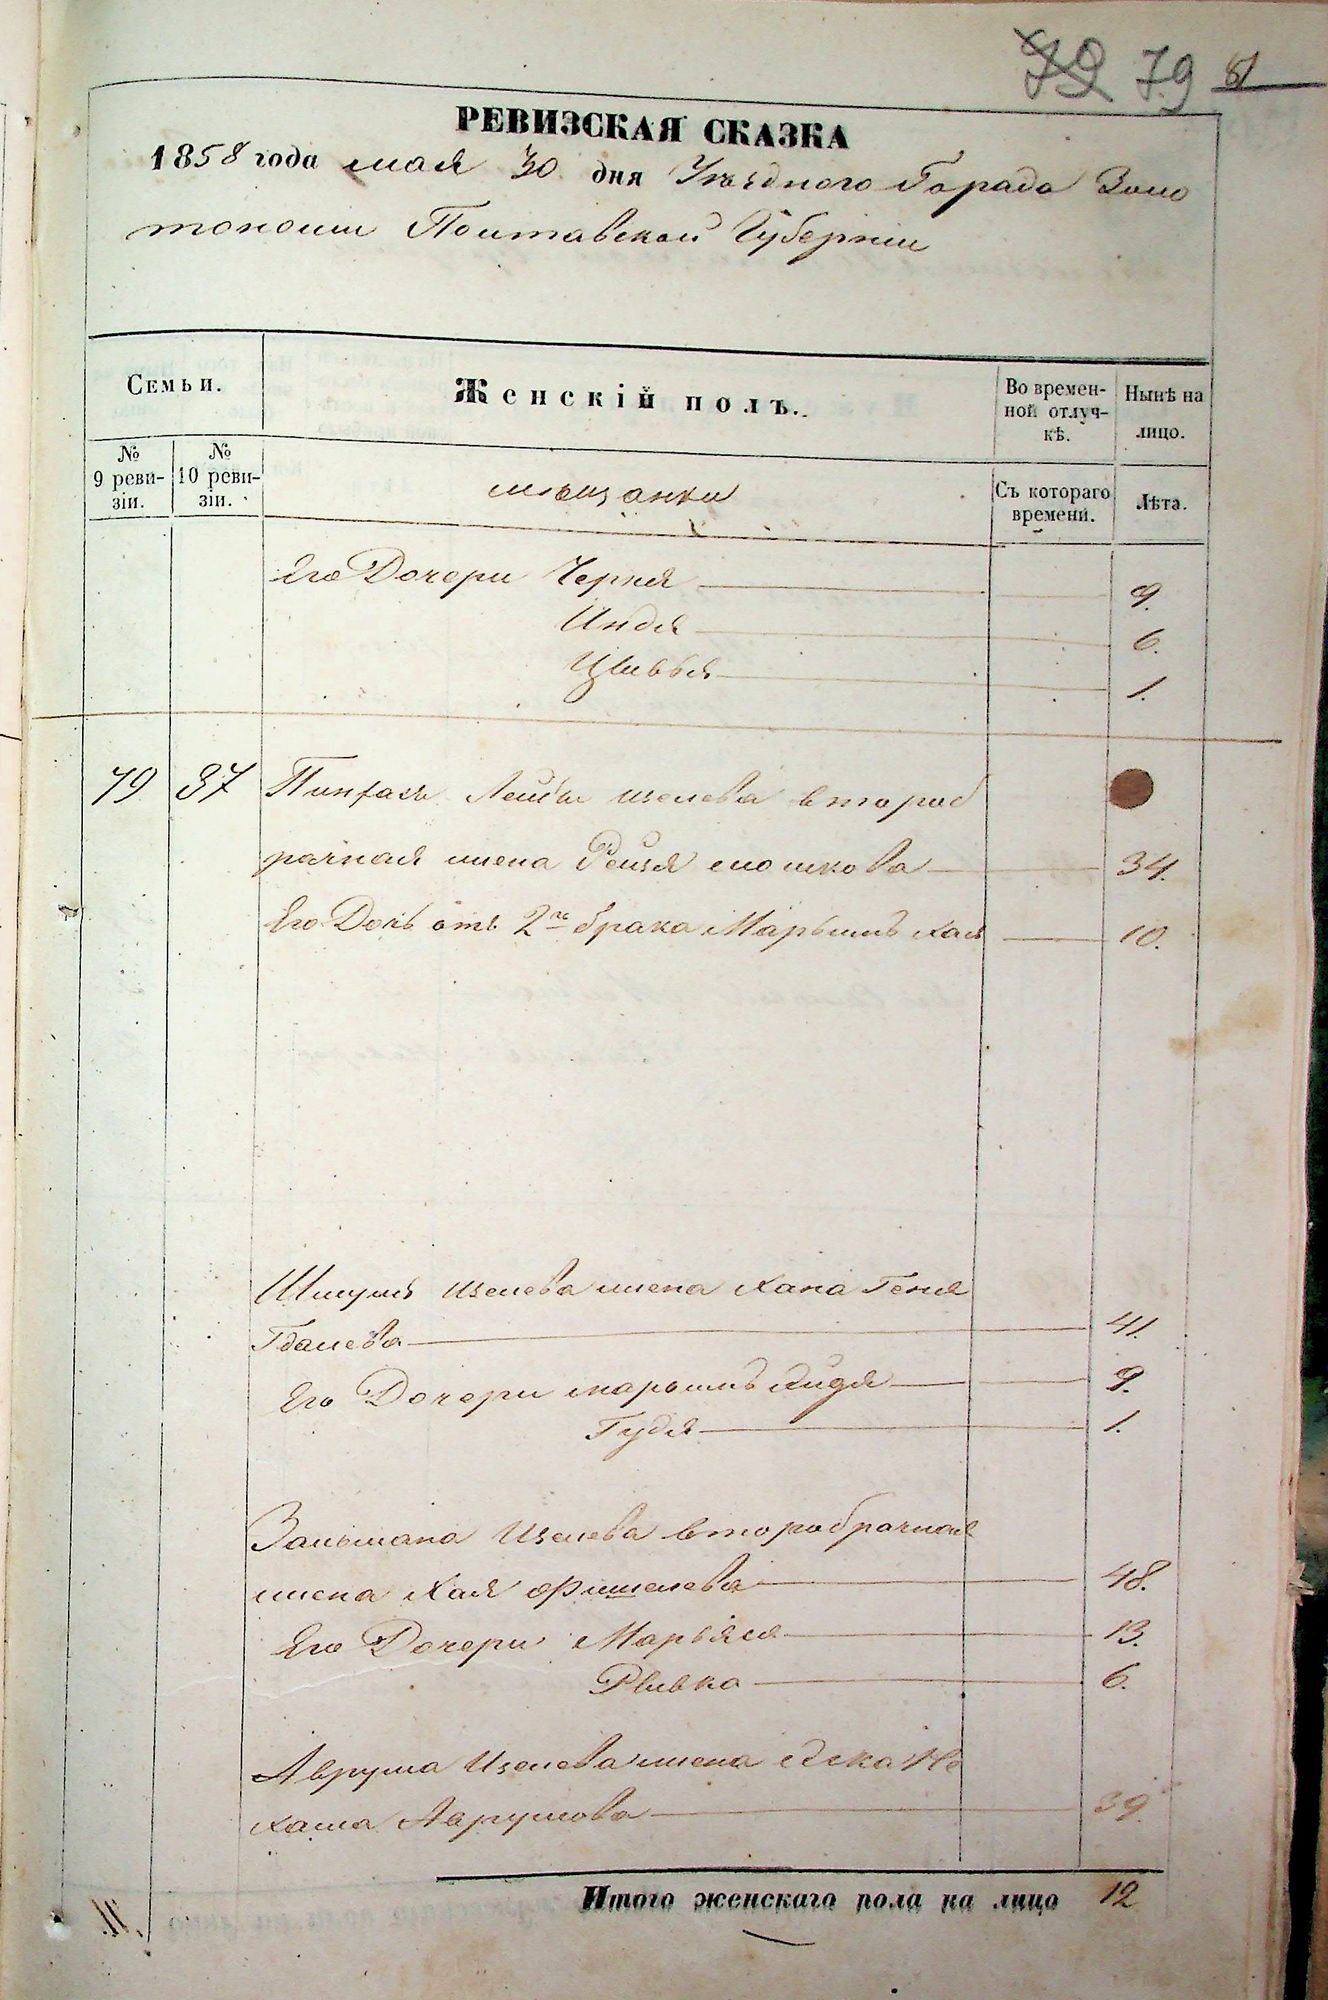 79 79 81
РЕВИЗСКАЯ СКАЗКА
1858 года мая 30 дня Уѣзднаго Города Золо
тоноши Полтавской Губернiи
Семьи.
Женскій полъ.
Во времен-
ной отлуч-
кѣ.
Нынѣ на
лицо.
№
9 реви-
зіи.
№
10 реви-
зіи.
мѣщанки
Съ котораго
времени.
Лѣта.
Его Дочери Черня 9.
Индя 6.
Цывья 1.
79 37 Пинхаса Лейбы Изелева второб
рачная жена Рейзя Мошкова 34.
Его Дочь отъ 2го брака Марьимъ Хая 10.
Шмуля Изелева жена Хана Геня
Гдалева 41.
Его Дочери Марьимъ 9.
Гудя 1.
Залмана Изелева второбрачная
жена Хая Фишелева 48.
Его Дочери Марьяся 13.
Рывка 6.
Аврума Изелева жена Не
хама Аврумова 39.
Итого женскаго пола на лицо 12